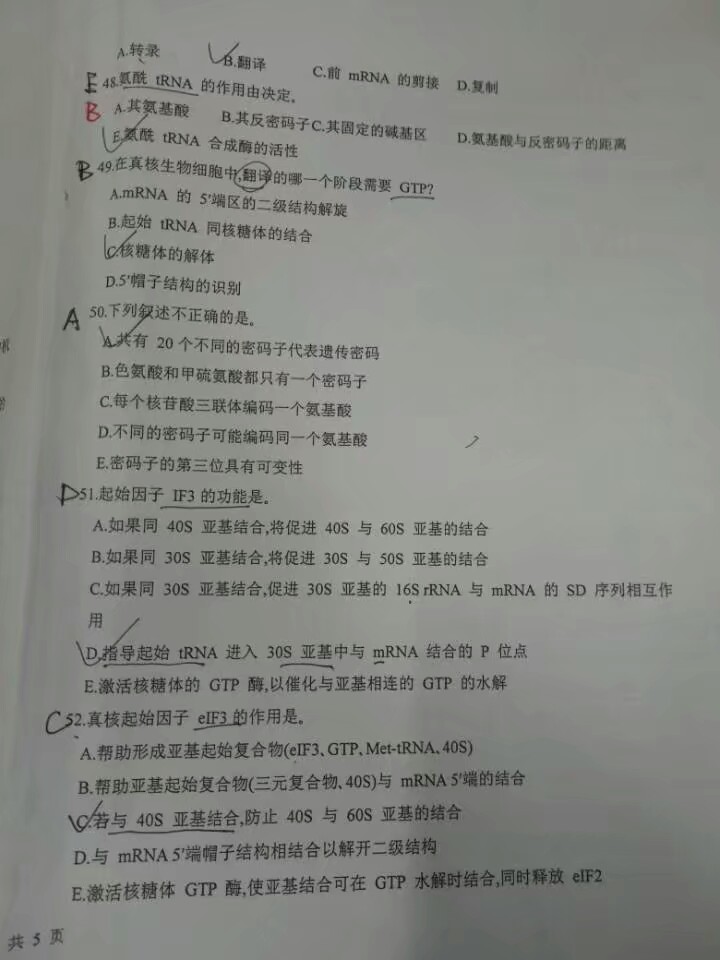 A.转录 B.翻译 C.前 mRNA 的剪接 D.复制
E 48.氨酰 tRNA 的作用由决定。
B A.其氨基酸 B.其反密码子C.其固定的碱基区 D.氨基酸与反密码子的距离
E.氨酰 tRNA 合成酶的活性
B 49.在真核生物细胞中,翻译的哪一个阶段需要 GTP?
A.mRNA 的 5′端区的二级结构解旋
B.起始 tRNA 同核糖体的结合
C.核糖体的解体
D.5′帽子结构的识别
A 50.下列叙述不正确的是。
A.共有 20 个不同的密码子代表遗传密码
B.色氨酸和甲硫氨酸都只有一个密码子
C.每个核苷酸三联体编码一个氨基酸
D.不同的密码子可能编码同一个氨基酸
E.密码子的第三位具有可变性
D 51.起始因子 IF3 的功能是。
A.如果同 40S 亚基结合,将促进 40S 与 60S 亚基的结合
B.如果同 30S 亚基结合,将促进 30S 与 50S 亚基的结合
C.如果同 30S 亚基结合,促进 30S 亚基的 16S rRNA 与 mRNA 的 SD 序列相互作
用
D.指导起始 tRNA 进入 30S 亚基中与 mRNA 结合的 P 位点
E.激活核糖体的 GTP 酶,以催化与亚基相连的 GTP 的水解
C 52.真核起始因子 eIF3 的作用是。
A.帮助形成亚基起始复合物(eIF3、GTP、Met-tRNA、40S)
B.帮助亚基起始复合物(三元复合物、40S)与 mRNA 5′端的结合
C.若与 40S 亚基结合,防止 40S 与 60S 亚基的结合
D.与 mRNA 5′端帽子结构相结合以解开二级结构
E.激活核糖体 GTP 酶,使亚基结合可在 GTP 水解时结合,同时释放 eIF2
共 5 页